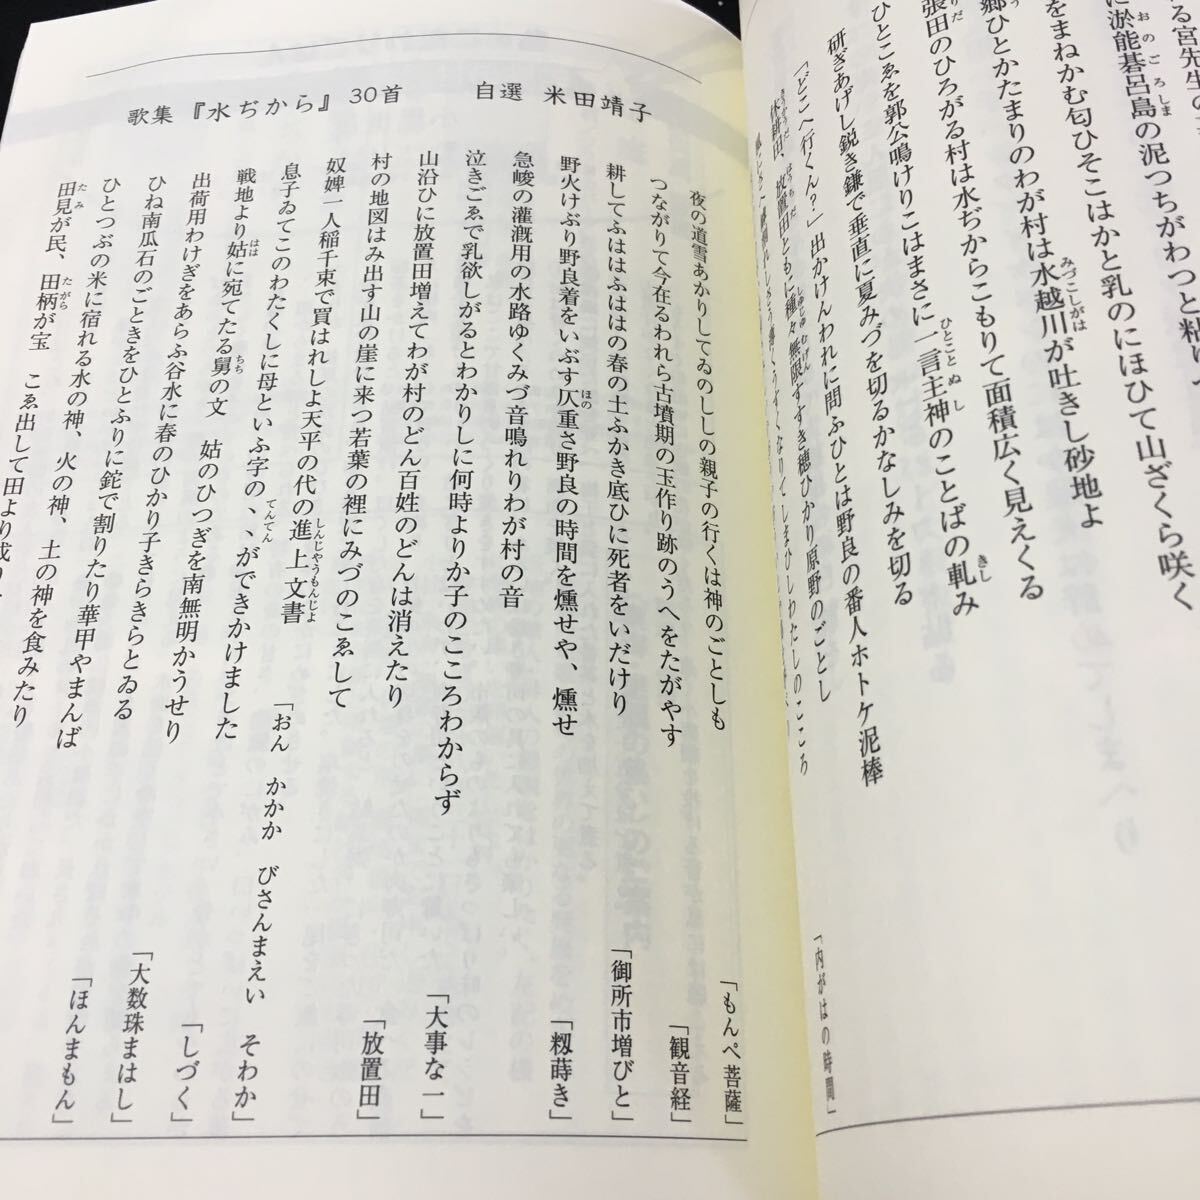 る宮先生の
おのごろしま
に淤能碁呂島の泥つちがわつと粘り
をまねかむ匂ひそこはかと乳のにほひて山ざくら咲く
みづこしがは
郷ひとかたまりのわが村は水越川が吐きし砂地よ
張田のひろがる村は水ぢからこもりて面積広く見えくる
ひとことぬし きし
ひとこゑを郭公鳴けりこはまさに一言主神のことばの軋み
研ぎあげし鋭き鎌で垂直に夏みづを切るかなしみを切る
「どこへ行くん？」出かけんわれに問ふひとは野良の番人ホトケ泥棒
しゆじゆむげん
休耕田、放置田ともに種々無限すすき穂ひかり原野のごとし
うすくなりてしまひしわたしのこころ
「内がはの時間」
歌集『水ぢから』30首 自選 米田靖子
夜の道雪あかりしてゐのししの親子の行くは神のごとしも
「もんぺ菩薩」
つながりて今在るわれら古墳期の玉作り跡のうへをたがやす
「観音経」
耕してふはふはふはの春の土ふかき底ひに死者をいだけり
「御所市増びと」
ほの
野火けぶり野良着をいぶす仄重さ野良の時間を燻せや、燻せ
「籾蒔き」
急峻の灌漑用の水路ゆくみづ音鳴れりわが村の音
泣きごゑで乳欲しがるとわかりしに何時よりか子のこころわからず
「大事な一」
山沿ひに放置田増えてわが村のどん百姓のどんは消えたり
「放置田」
村の地図はみ出す山の崖に来つ若葉の裡にみづのこゑして
しんじやうもんじよ
奴婢一人稲千束で買はれしよ天平の代の進上文書
てんてん
息子ゐてこのわたくしに母といふ字の、、ができかけました
「おん かかか びさんまえい そわか」
はは ちち
戦地より姑に宛てたる舅の文 姑のひつぎを南無明かうせり
出荷用わけぎをあらふ谷水に春のひかり子きらきらとゐる
「しづく」
ひね南瓜石のごときをひとふりに鉈で割りたり華甲やまんば
「大数珠まはし」
ひとつぶの米に宿れる水の神、火の神、土の神を食みたり
たみ たがら
田見が民、田柄が宝 こゑ出して田より
「ほんまもん」